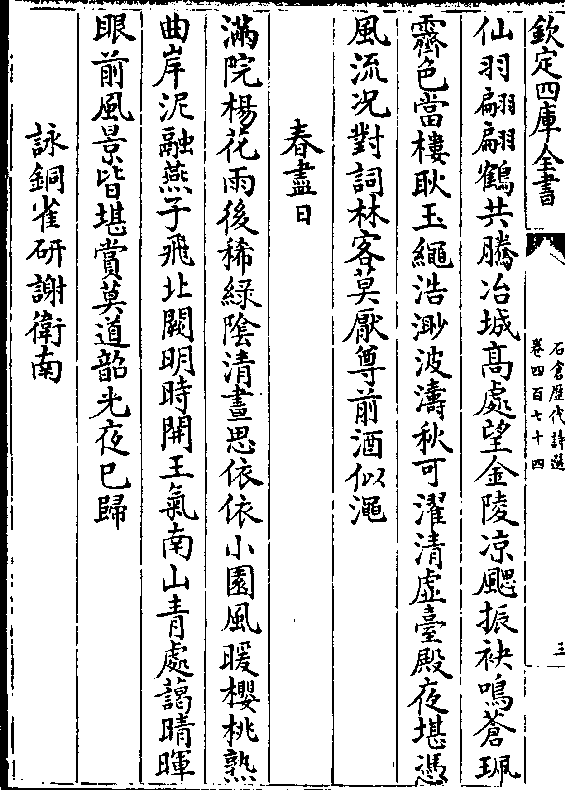 欽定四庫全書
石倉歷代詩選
卷四百七十四
三
仙羽翩翩鶴共騰冶城髙處望金陵凉颸振袂鳴蒼珮
霽色當樓耿玉繩浩渺波濤秋可濯清虚臺殿夜堪憑
風流况對詞林客莫厭尊前酒似澠
春盡日
滿院楊花雨後稀綠陰清晝思依依小園風暖櫻桃熟
曲岸泥融燕子飛北闕明時開王氣南山青處藹晴暉
眼前風景皆堪賞莫道韶光夜已歸
詠銅雀研謝衛南